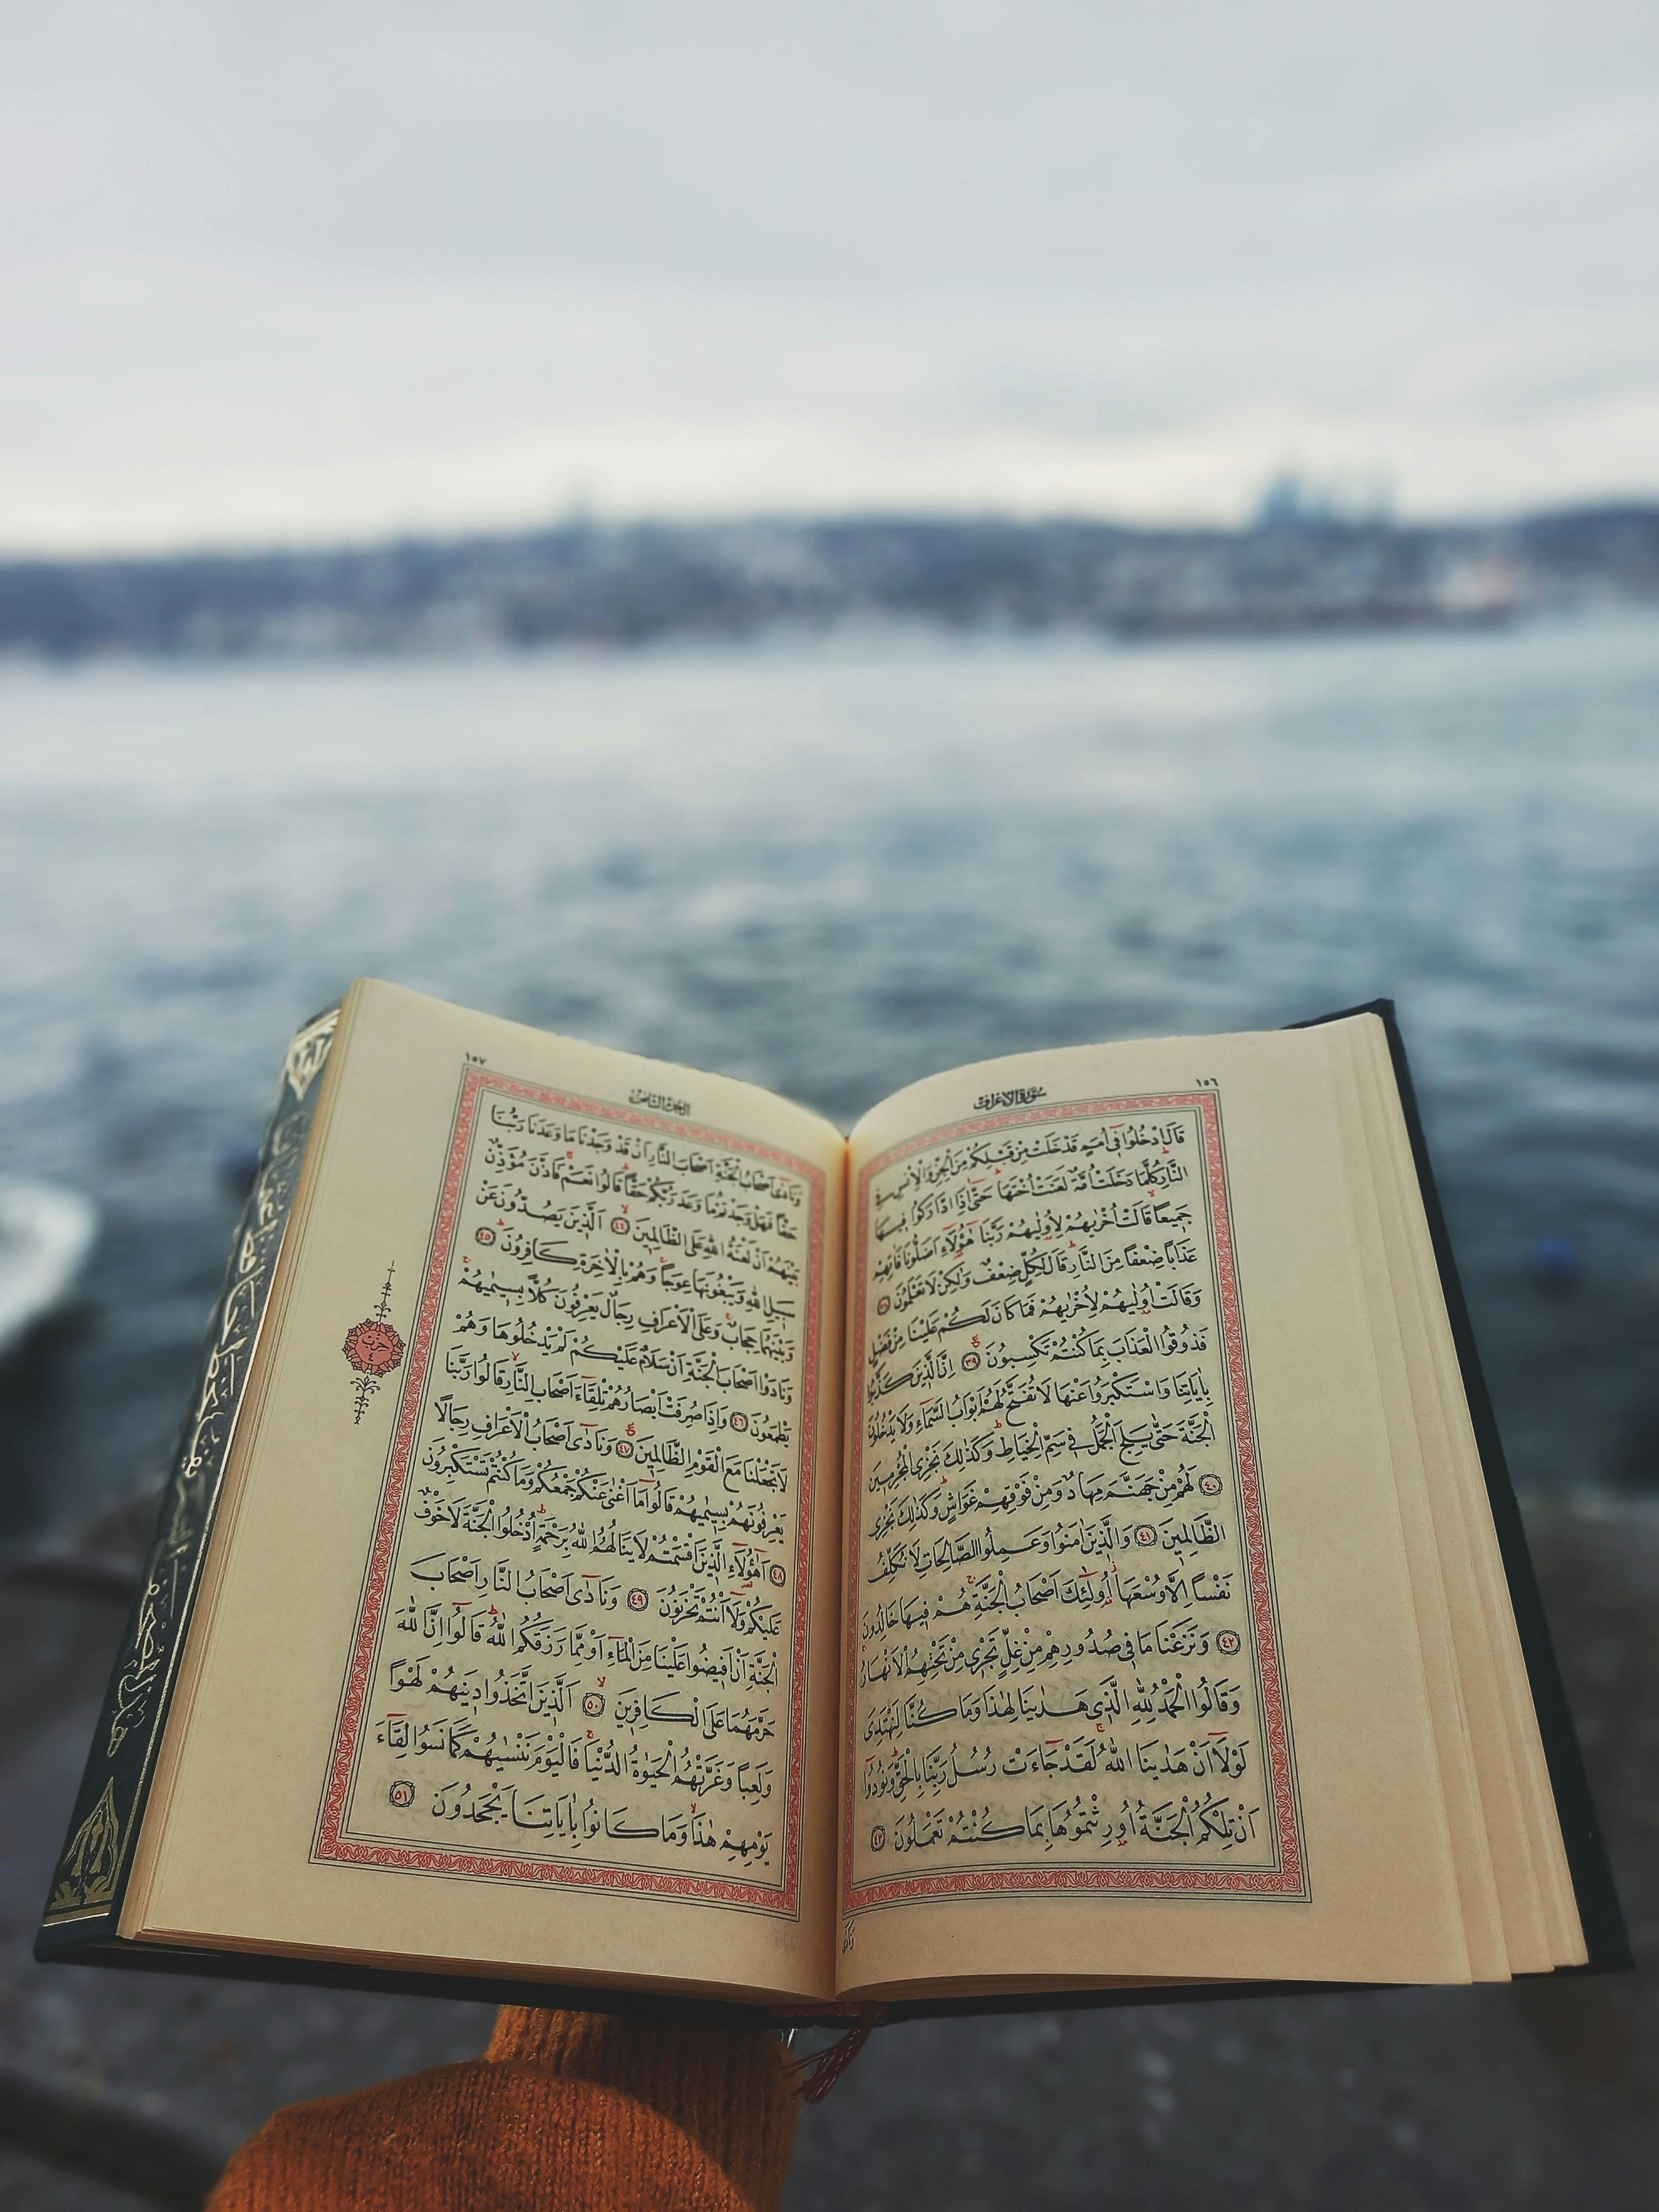 ١٥٦
سورة الاعراف
قَالَ ادْخُلُوا فٓى اُمَمٍ قَدْ خَلَتْ مِنْ قَبْلِكُمْ مِنَ الْجِنِّ وَالْاِنْسِ فِى
النَّارِ كُلَّمَا دَخَلَتْ اُمَّةٌ لَعَنَتْ اُخْتَهَا حَتّٰٓى اِذَا ادَّارَكُوا فٖيهَا
جَمٖيعًا قَالَتْ اُخْرٰيهُمْ لِاُولٰيهُمْ رَبَّنَا هٰٓؤُلَٓاءِ اَضَلُّونَا فَاٰتِهِمْ
عَذَابًا ضِعْفًا مِنَ النَّارِ قَالَ لِكُلٍّ ضِعْفٌ وَلٰكِنْ لَا تَعْلَمُونَ ﴿٣٨﴾
وَقَالَتْ اُولٰيهُمْ لِاُخْرٰيهُمْ فَمَا كَانَ لَكُمْ عَلَيْنَا مِنْ فَضْلٍ
فَذُوقُوا الْعَذَابَ بِمَا كُنْتُمْ تَكْسِبُونَ ﴿٣٩﴾ اِنَّ الَّذٖينَ كَذَّبُوا
بِاٰيَاتِنَا وَاسْتَكْبَرُوا عَنْهَا لَا تُفَتَّحُ لَهُمْ اَبْوَابُ السَّمَٓاءِ وَلَا يَدْخُلُونَ
الْجَنَّةَ حَتّٰى يَلِجَ الْجَمَلُ فٖى سَمِّ الْخِيَاطِ وَكَذٰلِكَ نَجْزِى الْمُجْرِمٖينَ
﴿٤٠﴾ لَهُمْ مِنْ جَهَنَّمَ مِهَادٌ وَمِنْ فَوْقِهِمْ غَوَاشٍ وَكَذٰلِكَ نَجْزِى
الظَّالِمٖينَ ﴿٤١﴾ وَالَّذٖينَ اٰمَنُوا وَعَمِلُوا الصَّالِحَاتِ لَا نُكَلِّفُ
نَفْسًا اِلَّا وُسْعَهَا اُولٰٓئِكَ اَصْحَابُ الْجَنَّةِ هُمْ فٖيهَا خَالِدُونَ
﴿٤٢﴾ وَنَزَعْنَا مَا فٖى صُدُورِهِمْ مِنْ غِلٍّ تَجْرٖى مِنْ تَحْتِهِمُ الْاَنْهَارُ
وَقَالُوا الْحَمْدُ لِلّٰهِ الَّذٖى هَدٰينَا لِهٰذَا وَمَا كُنَّا لِنَهْتَدِىَ
لَوْلَٓا اَنْ هَدٰينَا اللّٰهُ لَقَدْ جَٓاءَتْ رُسُلُ رَبِّنَا بِالْحَقِّ وَنُودُٓوا
اَنْ تِلْكُمُ الْجَنَّةُ اُورِثْتُمُوهَا بِمَا كُنْتُمْ تَعْمَلُونَ ﴿٤٣﴾
١٥٧
الجزء الثامن
وَنَادٰٓى اَصْحَابُ الْجَنَّةِ اَصْحَابَ النَّارِ اَنْ قَدْ وَجَدْنَا مَا وَعَدَنَا رَبُّنَا
حَقًّا فَهَلْ وَجَدْتُمْ مَا وَعَدَ رَبُّكُمْ حَقًّا قَالُوا نَعَمْ فَاَذَّنَ مُؤَذِّنٌ
بَيْنَهُمْ اَنْ لَعْنَةُ اللّٰهِ عَلَى الظَّالِمٖينَ ﴿٤٤﴾ اَلَّذٖينَ يَصُدُّونَ عَنْ
سَبٖيلِ اللّٰهِ وَيَبْغُونَهَا عِوَجًا وَهُمْ بِالْاٰخِرَةِ كَافِرُونَ ﴿٤٥﴾
وَبَيْنَهُمَا حِجَابٌ وَعَلَى الْاَعْرَافِ رِجَالٌ يَعْرِفُونَ كُلًّا بِسٖيمٰيهُمْ
وَنَادَوْا اَصْحَابَ الْجَنَّةِ اَنْ سَلَامٌ عَلَيْكُمْ لَمْ يَدْخُلُوهَا وَهُمْ
يَطْمَعُونَ ﴿٤٦﴾ وَاِذَا صُرِفَتْ اَبْصَارُهُمْ تِلْقَٓاءَ اَصْحَابِ النَّارِ قَالُوا رَبَّنَا
لَا تَجْعَلْنَا مَعَ الْقَوْمِ الظَّالِمٖينَ ﴿٤٧﴾ وَنَادٰٓى اَصْحَابُ الْاَعْرَافِ رِجَالًا
يَعْرِفُونَهُمْ بِسٖيمٰيهُمْ قَالُوا مَٓا اَغْنٰى عَنْكُمْ جَمْعُكُمْ وَمَا كُنْتُمْ تَسْتَكْبِرُونَ
﴿٤٨﴾ اَهٰٓؤُلَٓاءِ الَّذٖينَ اَقْسَمْتُمْ لَا يَنَالُهُمُ اللّٰهُ بِرَحْمَةٍ اُدْخُلُوا الْجَنَّةَ لَا خَوْفٌ
عَلَيْكُمْ وَلَٓا اَنْتُمْ تَحْزَنُونَ ﴿٤٩﴾ وَنَادٰٓى اَصْحَابُ النَّارِ اَصْحَابَ
الْجَنَّةِ اَنْ اَفٖيضُوا عَلَيْنَا مِنَ الْمَٓاءِ اَوْ مِمَّا رَزَقَكُمُ اللّٰهُ قَالُٓوا اِنَّ اللّٰهَ
حَرَّمَهُمَا عَلَى الْكَافِرٖينَ ﴿٥٠﴾ اَلَّذٖينَ اتَّخَذُوا دٖينَهُمْ لَهْوًا
وَلَعِبًا وَغَرَّتْهُمُ الْحَيٰوةُ الدُّنْيَا فَالْيَوْمَ نَنْسٰيهُمْ كَمَا نَسُوا لِقَٓاءَ
يَوْمِهِمْ هٰذَا وَمَا كَانُوا بِاٰيَاتِنَا يَجْحَدُونَ ﴿٥١﴾
حزب
٤